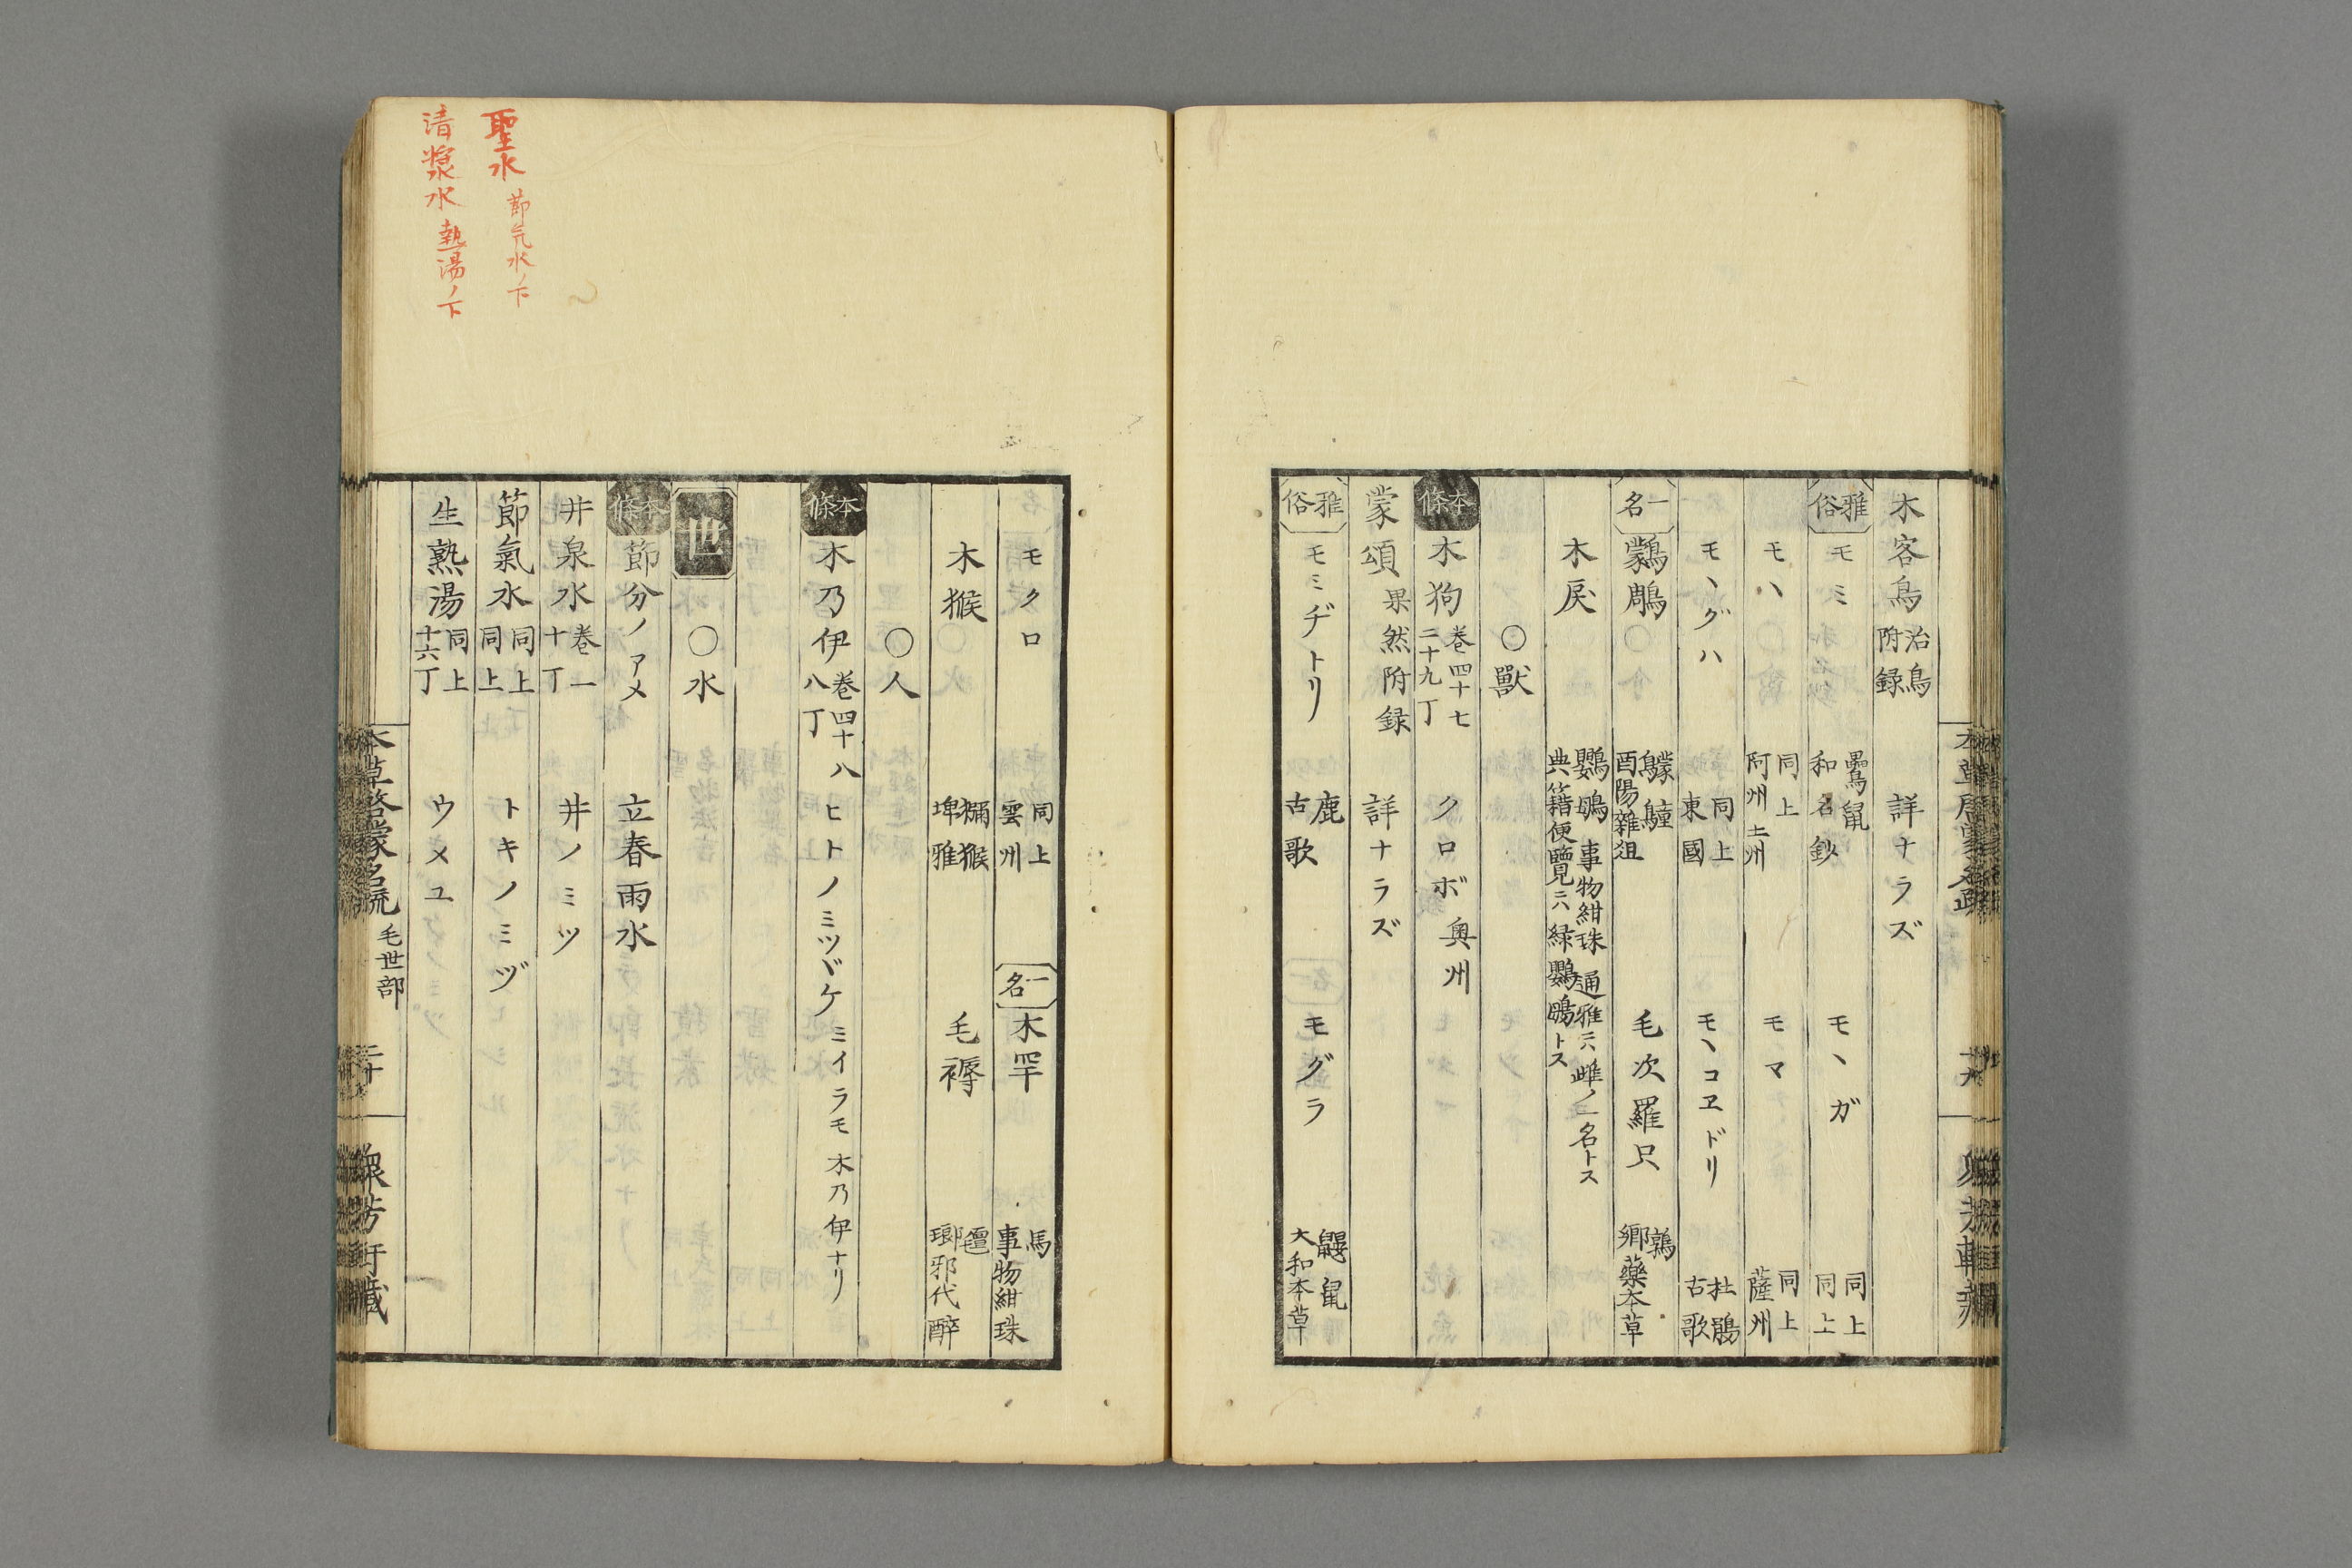 木客鳥 治鳥附録 詳ナラズ
雅俗 モミ 鸓鼠 和名鈔 モヽガ 同上 同上
モハ 同上 阿州 土州 モマ 同上 薩州
モヽグハ 同上 東國 モヽコヱドリ 杜鵑 古歌
一名 鸏鵰 酉陽雜俎 毛次羅只 鶉 郷藥本草
木戾 鸚鴟 事物紺珠 通雅ニハ雌ノ一名トス 典籍便覽ニハ緑鸚鴟トス
○獸
本條 木狗 卷四十七 二十九丁 クロボ 奥州
蒙頌 果然附録 詳ナラズ
雅俗 モミヂトリ 鹿 古歌 モグラ 鼴鼠 大和本草
モクロ 同上 雲州 一名 木罕 馬 事物紺珠
木猴 獼猴 埤雅 毛褥 氊 瑯邪代醉
○人
本條 木乃伊 卷四十八 八丁 ヒトノミツヾケ ミイラモ木乃伊ナリ
世 ○水
本條 節分ノアメ 立春雨水
井泉水 卷一 十丁 井ノミツ
節氣水 同上 同上 トキノミヅ
生熟湯 同上 十六丁 ウメユ
本草啓蒙名疏 毛世部 二十 衆芳軒藏
聖水 節気水ノ下
清漿水 熱湯ノ下